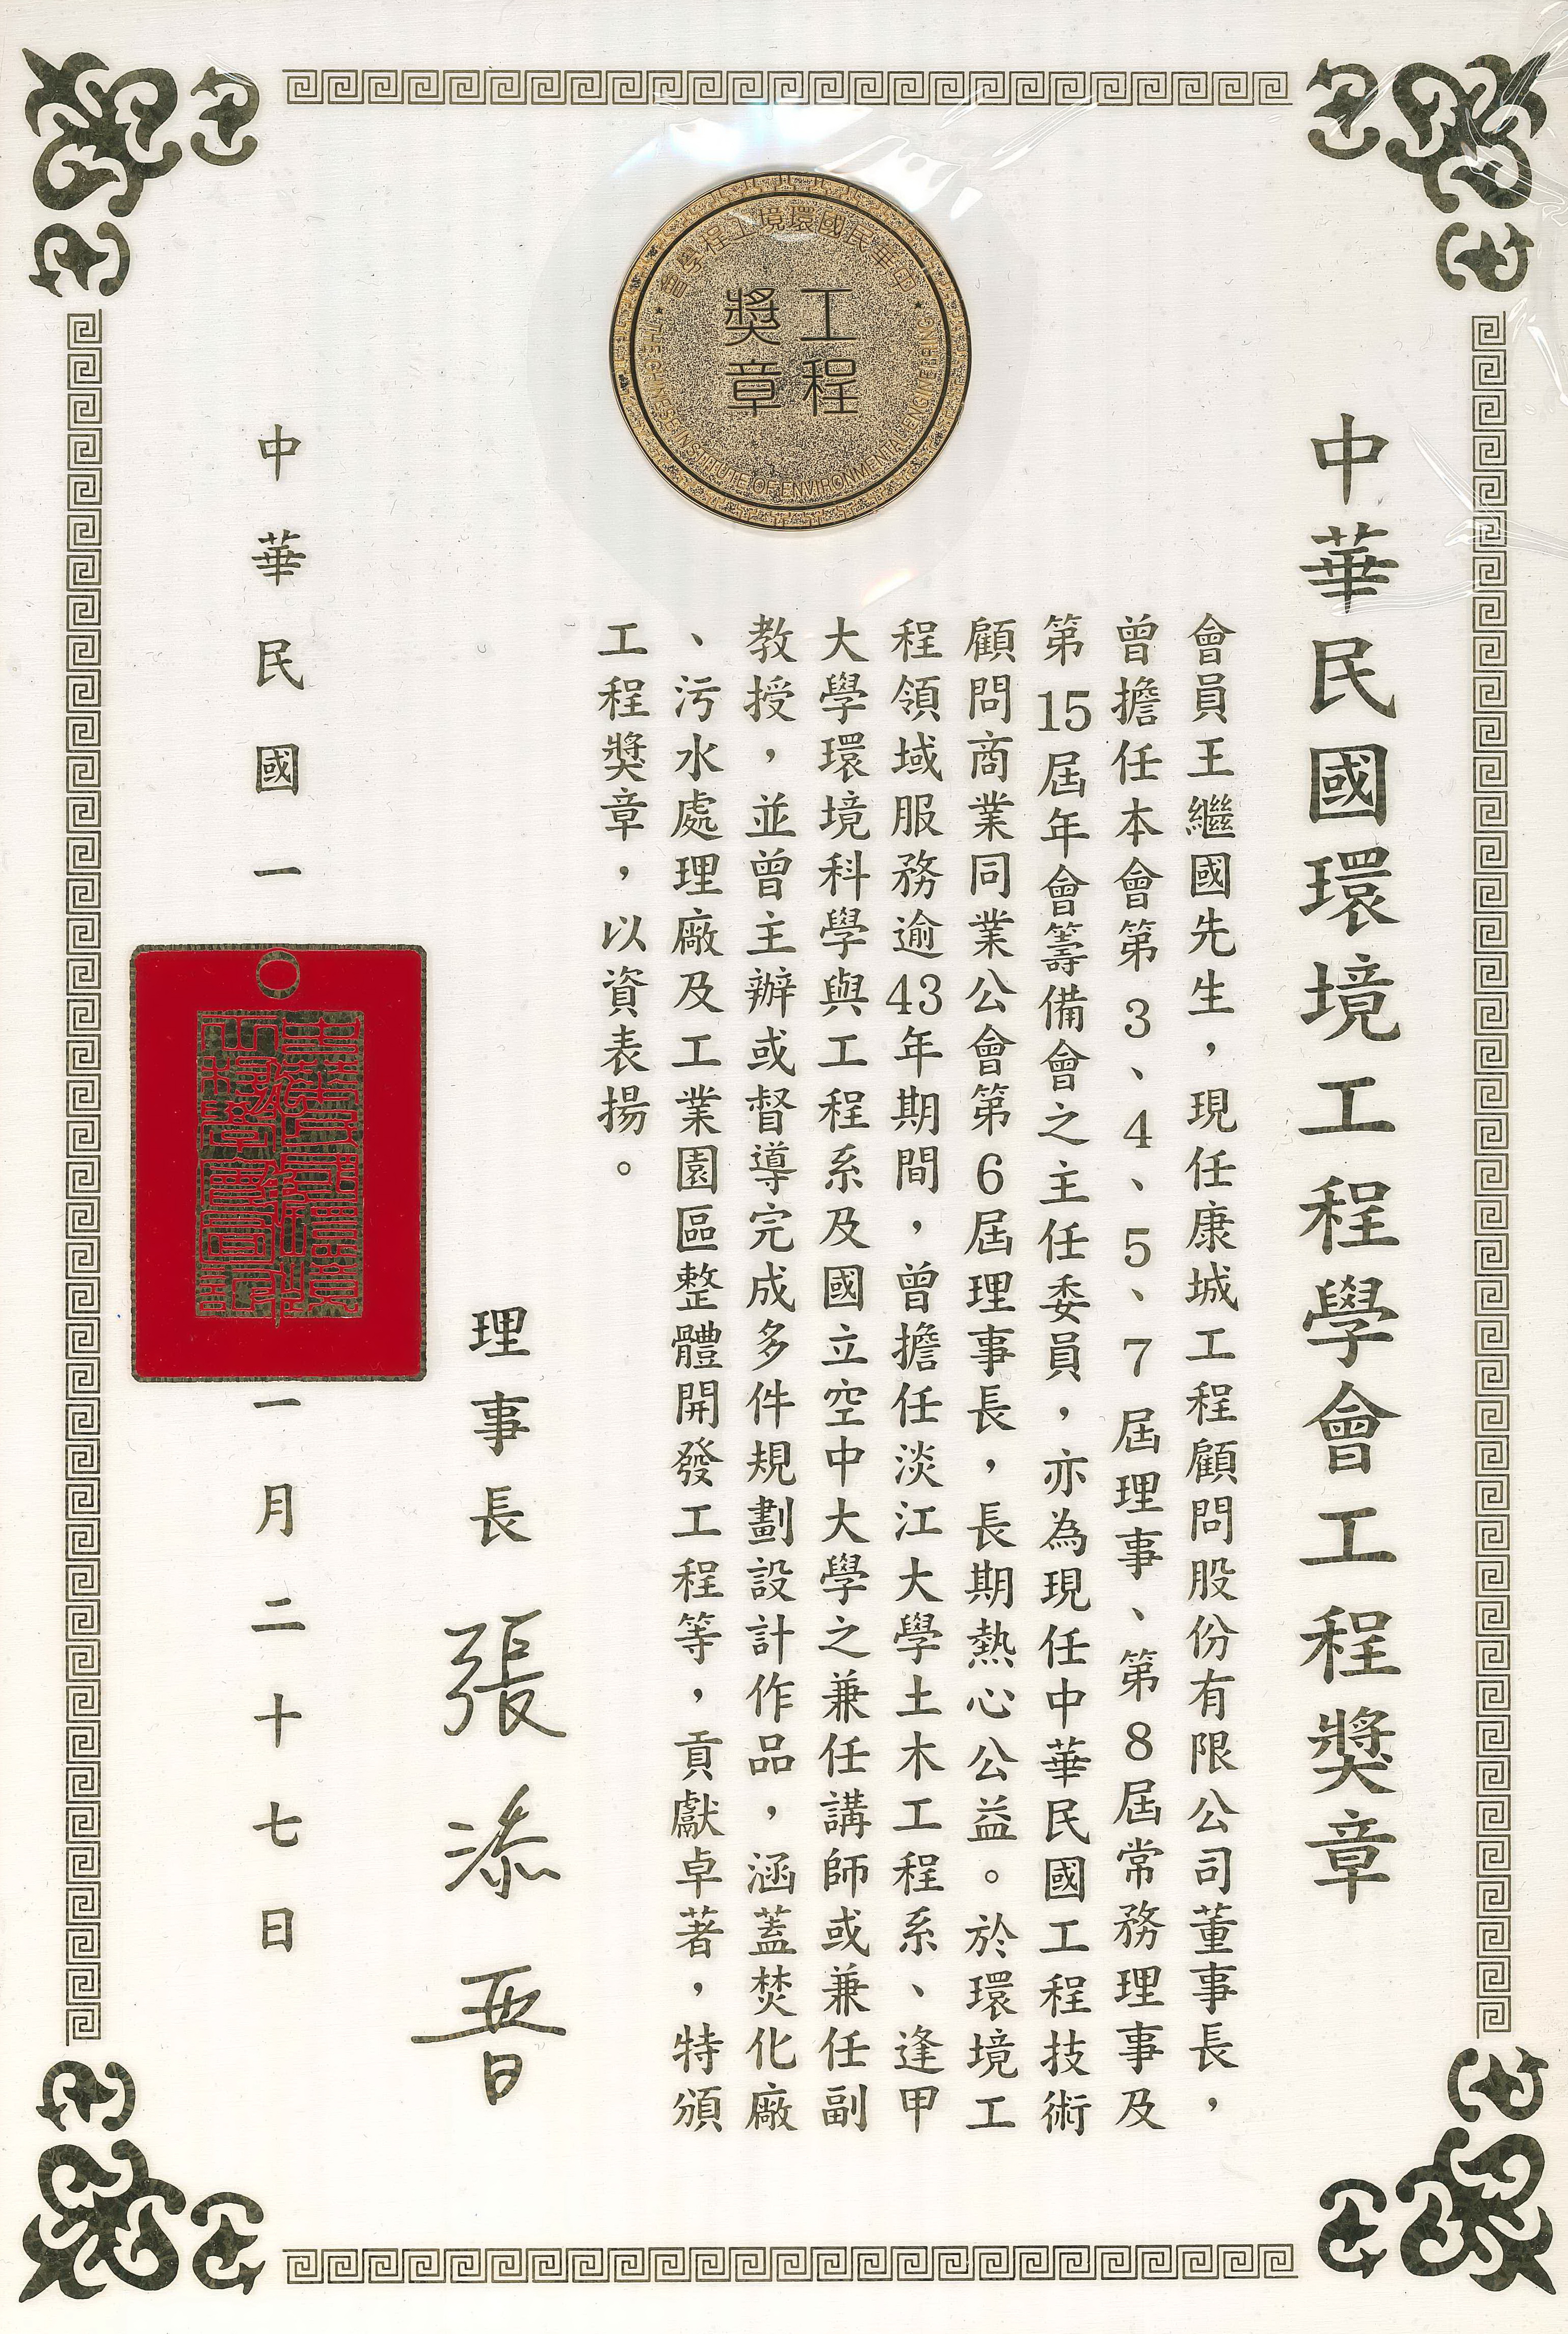 中華民國環境工程學會工程獎章
中華民國環境工程學會
THE CHINESE INSTITUTE OF ENVIRONMENTAL ENGINEERING
工程
獎章
會員王繼國先生，現任康城工程顧問股份有限公司董事長，
曾擔任本會第3、4、5、7屆理事、第8屆常務理事及
第15屆年會籌備會之主任委員，亦為現任中華民國工程技術
顧問商業同業公會第6屆理事長，長期熱心公益。於環境工
程領域服務逾43年期間，曾擔任淡江大學土木工程系、逢甲
大學環境科學與工程系及國立空中大學之兼任講師或兼任副
教授，並曾主辦或督導完成多件規劃設計作品，涵蓋焚化廠
、污水處理廠及工業園區整體開發工程等，貢獻卓著，特頒
工程獎章，以資表揚。
理事長 張添晉
中華民國一〇九年十一月二十七日